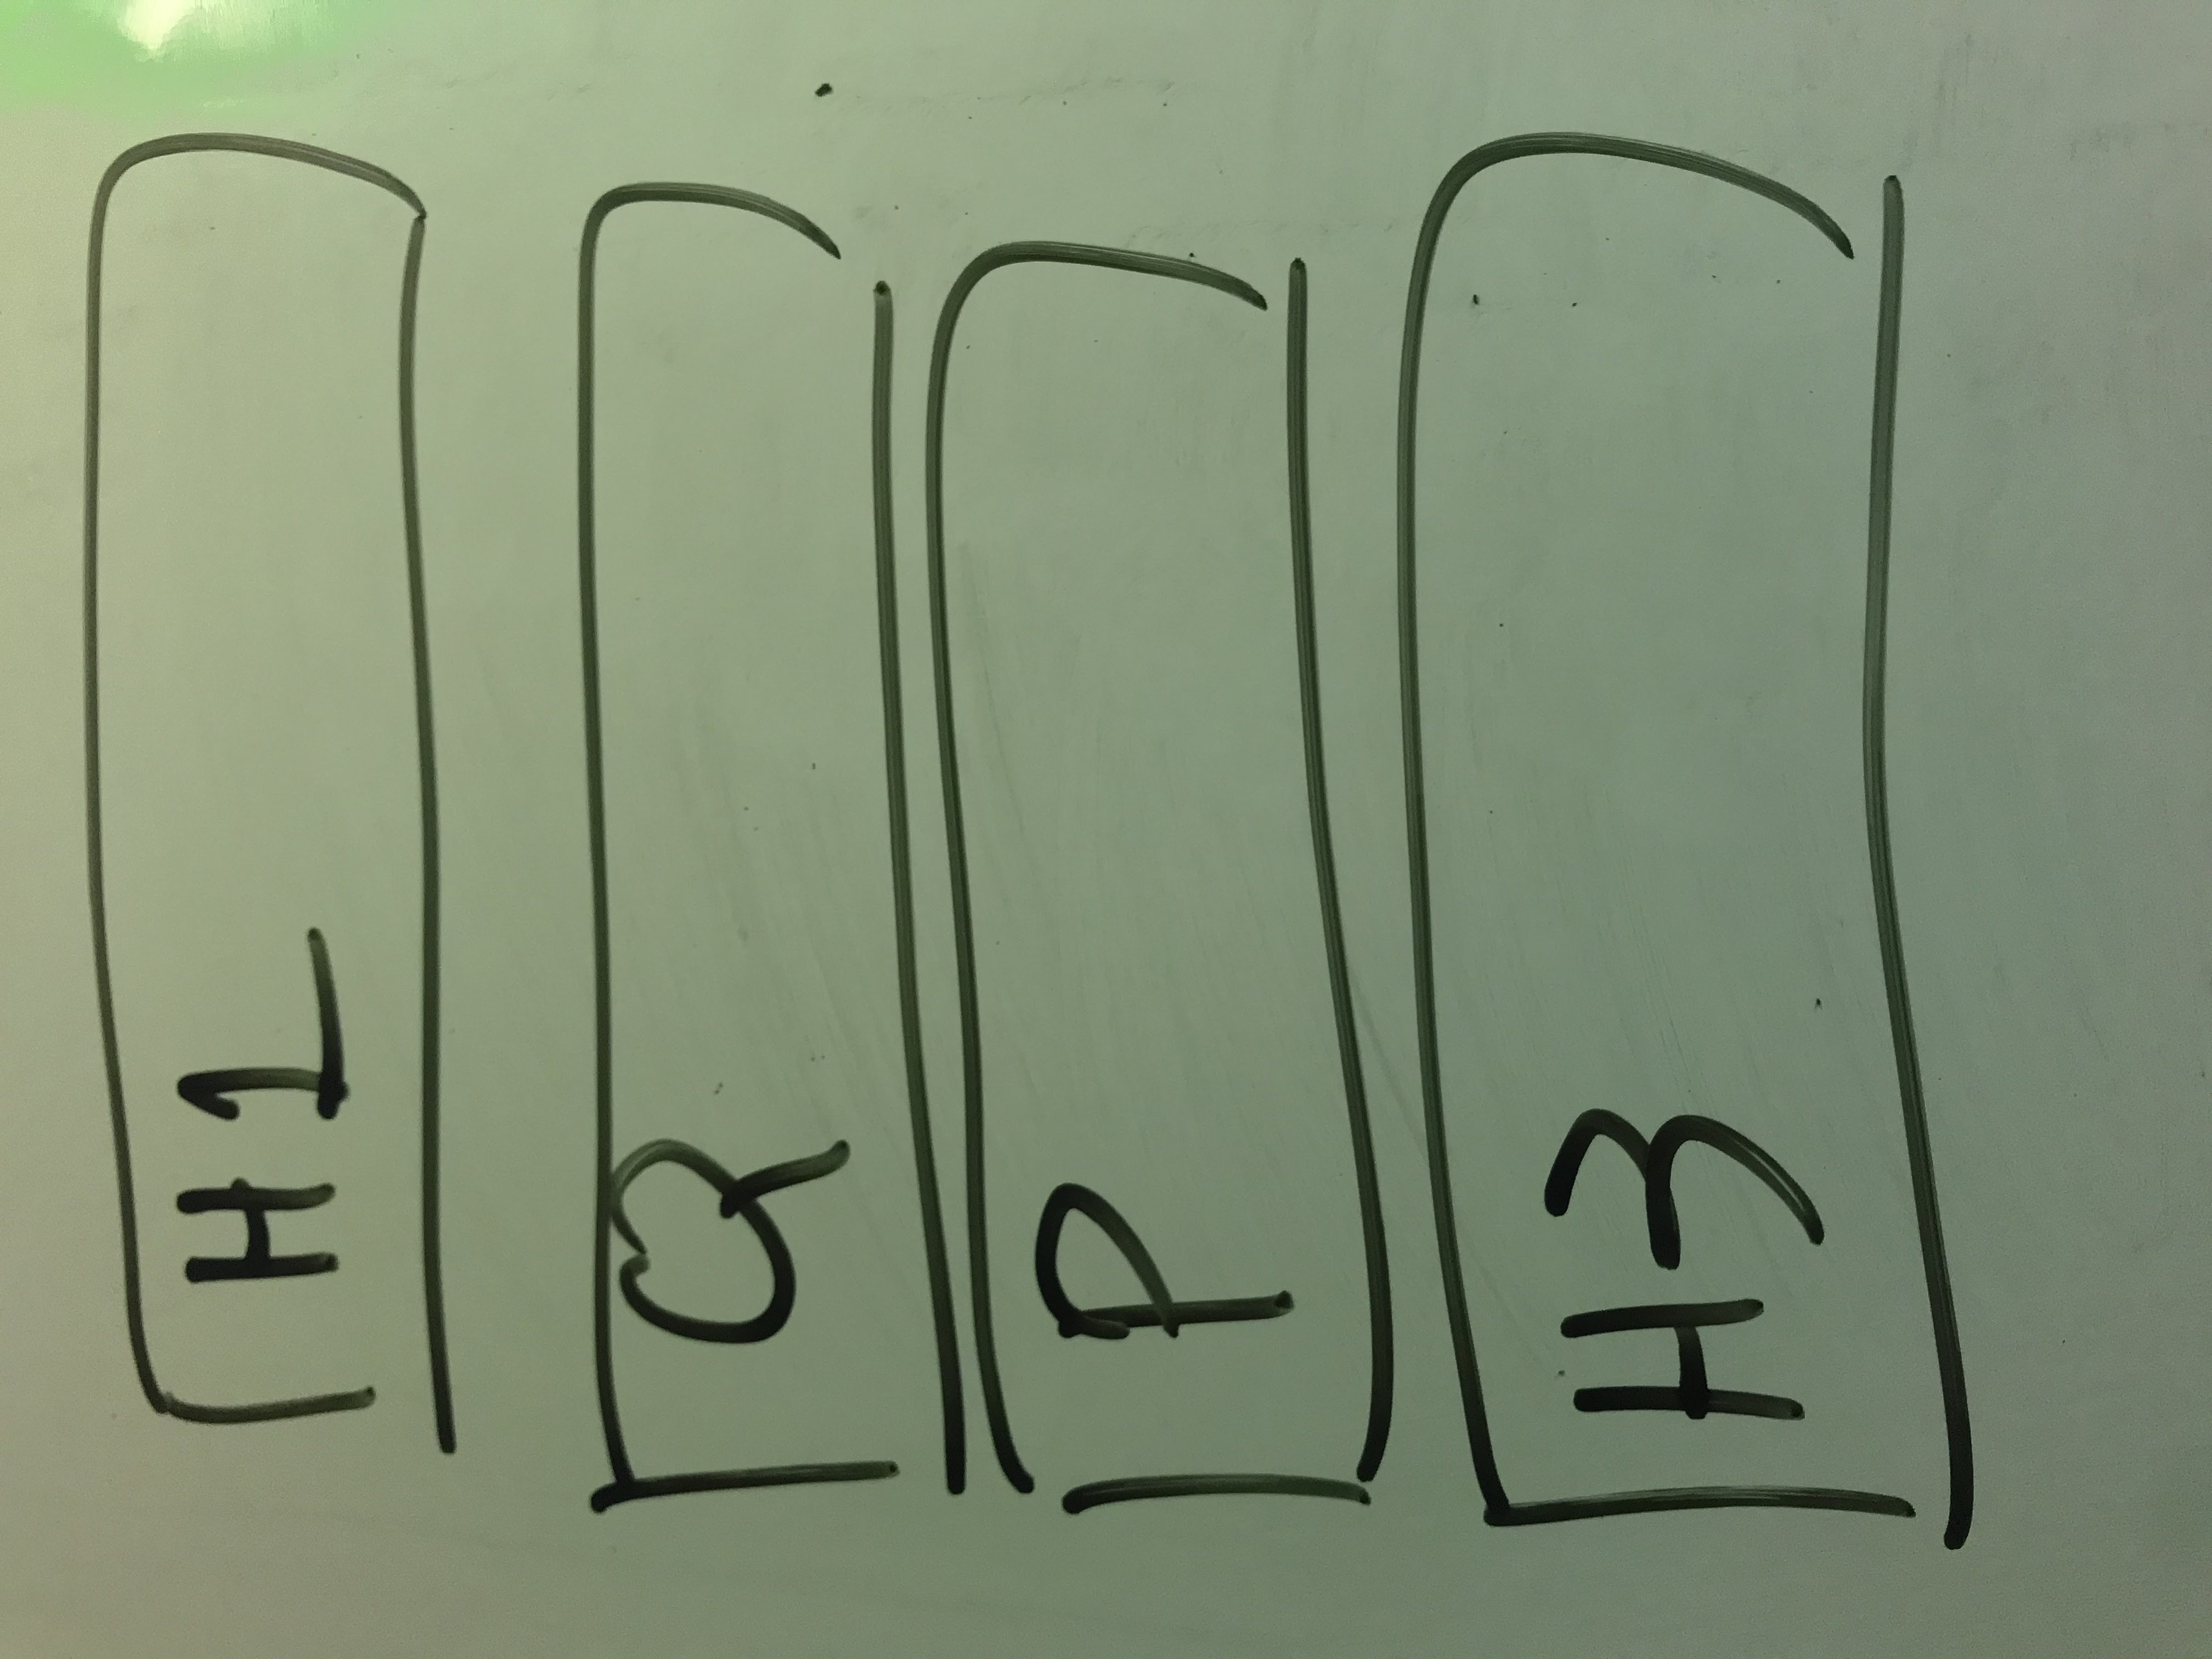 H1
Q
P
H3